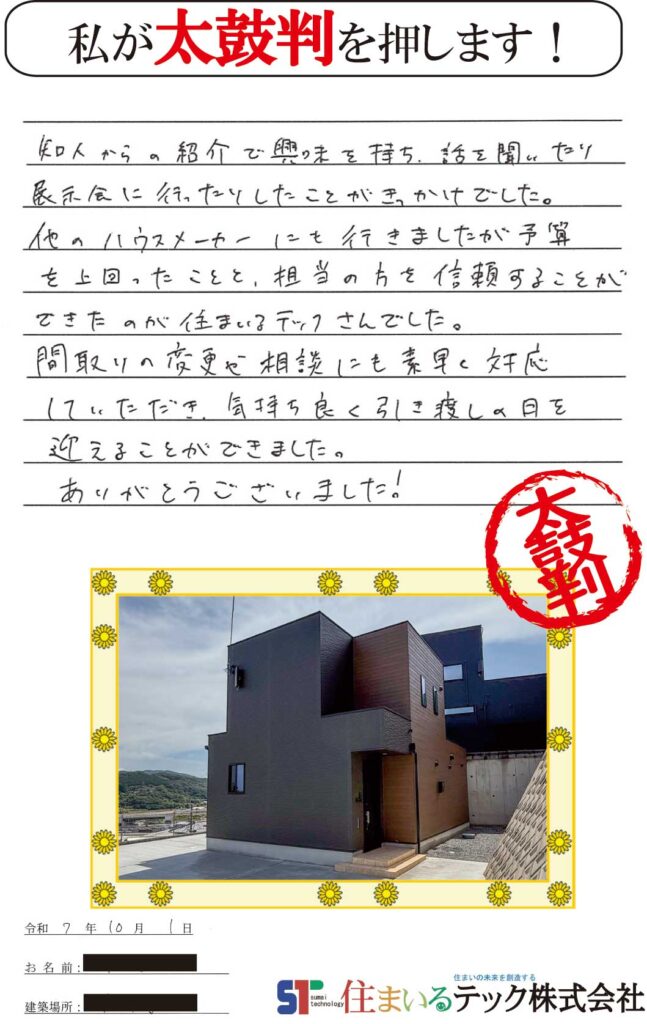 私が太鼓判を押します！
知人からの紹介で興味を持ち、話を聞いたり
展示会に行ったりしたことがきっかけでした。
他のハウスメーカーにも行きましたが予算
を上回ったことと、担当の方を信頼することが
できたのが住まいるテックさんでした。
間取りの変更や相談にも素早く対応
していただき、気持ち良く引き渡しの日を
迎えることができました。
ありがとうございました!
太鼓判
令和 7 年 10 月 1 日
お名前：
建築場所：
住まいの未来を創造する
ST sumai technology 住まいるテック株式会社